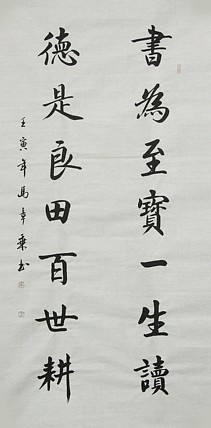 書為至寶一生讀
德是良田百世耕
壬寅年馬章乘書